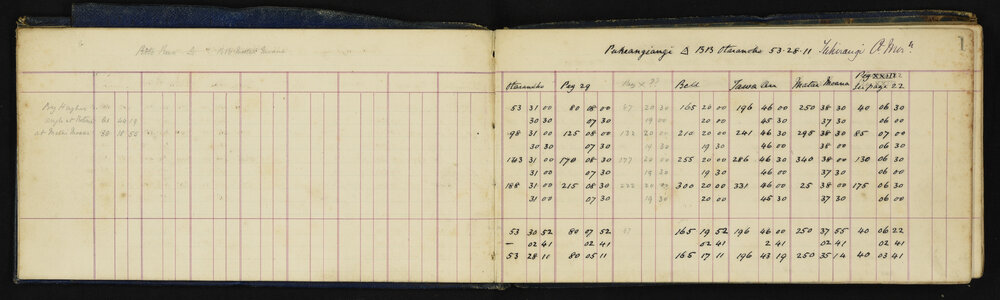 Bold Δ
Peg
angle at
at Matai Moana 88 18 55
Pukeangiangi Δ BB Otaranoho 53·28·11 Tikorangi
1
Otaranoho Peg 29 Peg Bold Tawa An Matai Moana Peg XXIII 22
See page 22
53 31 00 80 08 00 47 20 30 165 20 00 196 46 00 250 38 30 40 06 30
30 30 07 30 19 00 20 00 45 30 37 30 06 00
98 31 00 125 08 00 132 20 00 210 20 00 241 46 30 295 38 30 85 07 00
30 30 07 30 19 30 46 00 38 00 06 30
143 31 00 170 08 30 177 20 00 255 20 00 286 46 30 340 38 00 130 06 30
31 00 07 30 19 30 19 30 46 00 37 30 06 00
188 31 00 215 08 30 222 20 00 300 20 00 331 46 00 25 38 00 175 06 30
31 00 07 30 19 30 20 00 45 30 37 30 06 00
53 30 52 80 07 52 165 19 52 196 46 00 250 37 55 40 06 22
— 02 41 02 41 02 41 2 41 02 41 02 41
53 28 11 80 05 11 165 17 11 196 43 19 250 35 14 40 03 41